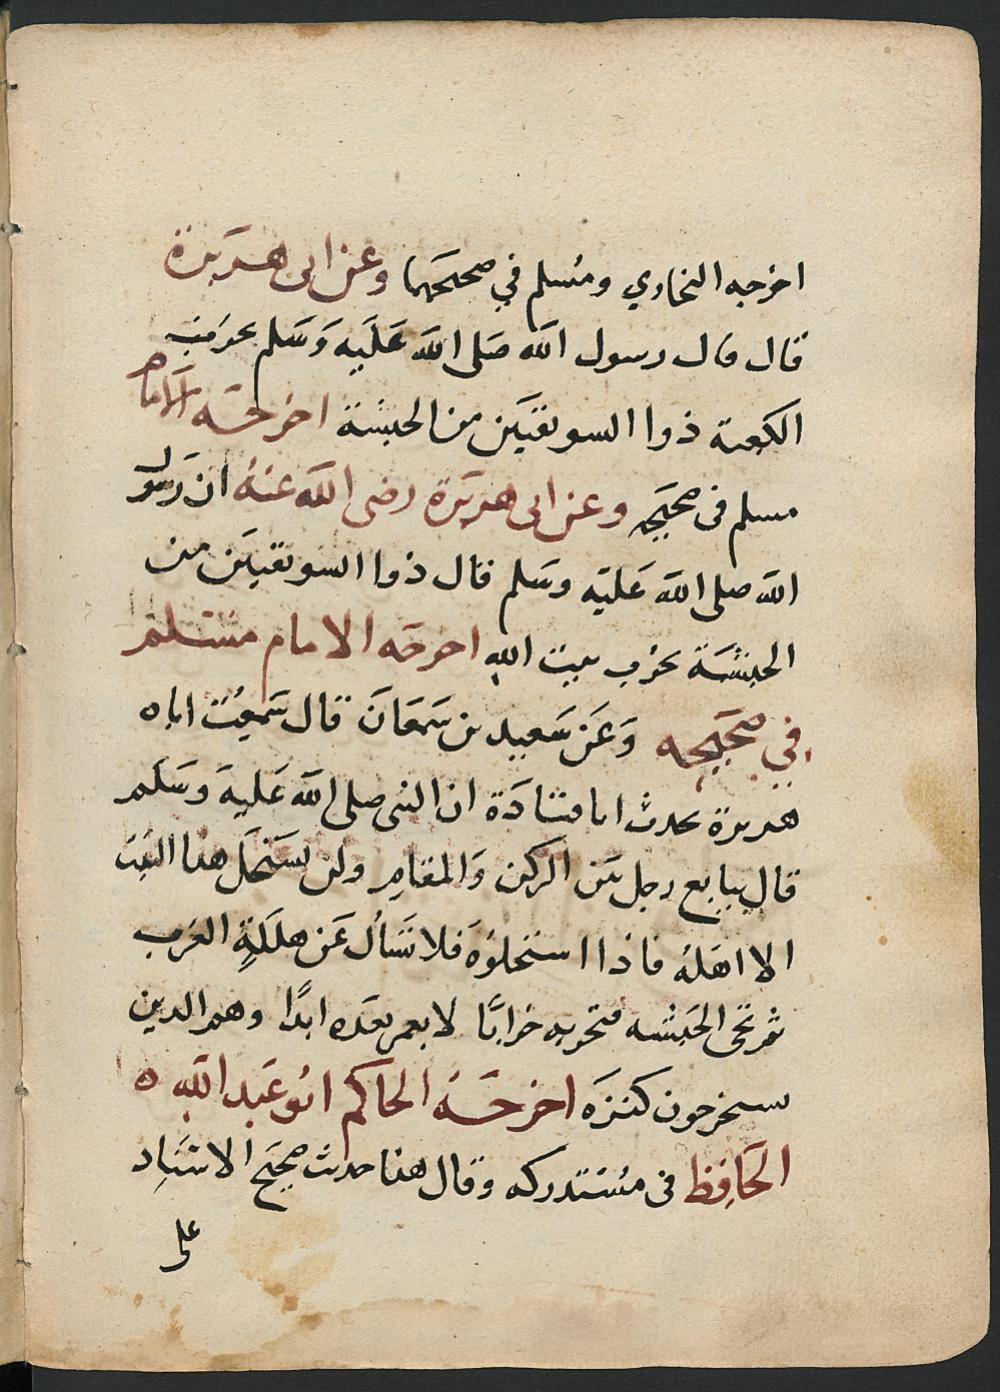 اخرجه البخاري ومسلم في صحيحهما وعن ابى هريرة
قال قال رسول الله صَلى الله عَلَيه وَسَلم يخرب
الكعبة ذوا السويقتين من الحبشة اخرجَه الامام
مسلم فى صحيحه وعن ابى هريرة رضى الله عنهُ ان رَسول
الله صلى الله عَليه وسَلم قال ذوا السويقتين من
الحبشة يخرب بيت الله اخرجه الامام مسلم
في صحيحه وَعَن سَعيد بن سَمعَانَ قال سَمعِتُ اباه
هريرة يحدث ابا قتادَة ان النبى صلى الله عَليه وَسَلم
قال يبايع رجل بَين الركن وَالمقامِ ولن يستَحلَ هذا البَيت
الا اهَلهُ فاذا استحلوُه فلا تسَأل عَن هلَكَةِ العَرب
ثم تجى الحبَشه فتخربه خرابًا لا يعمر بعَده ابدًا وهم الذين
يستخرجون كنزَه اخرجَهُ الحاكم ابو عَبد الله ه
الحَافِظ فى مسُتدركه وقال هذا حديث صحيح الاسنَاد
على